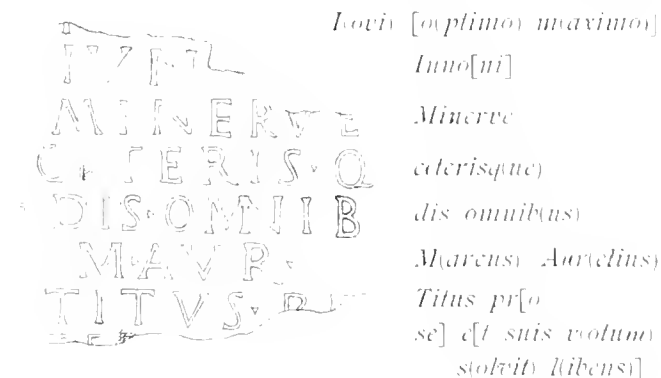 IVN
MINERVE
CETERIS·Q
DIS·OMNIB
M·AVR·
TITVS·PR
I(ovi) [o(ptimo) m(aximo)]
Iuno[ni]
Minerve
ceterisq(ue)
dis omnib(us)
M(arcus) Aur(elius)
Titus pr[o
se] e[t suis v(otum)
s(olvit) l(ibens)]